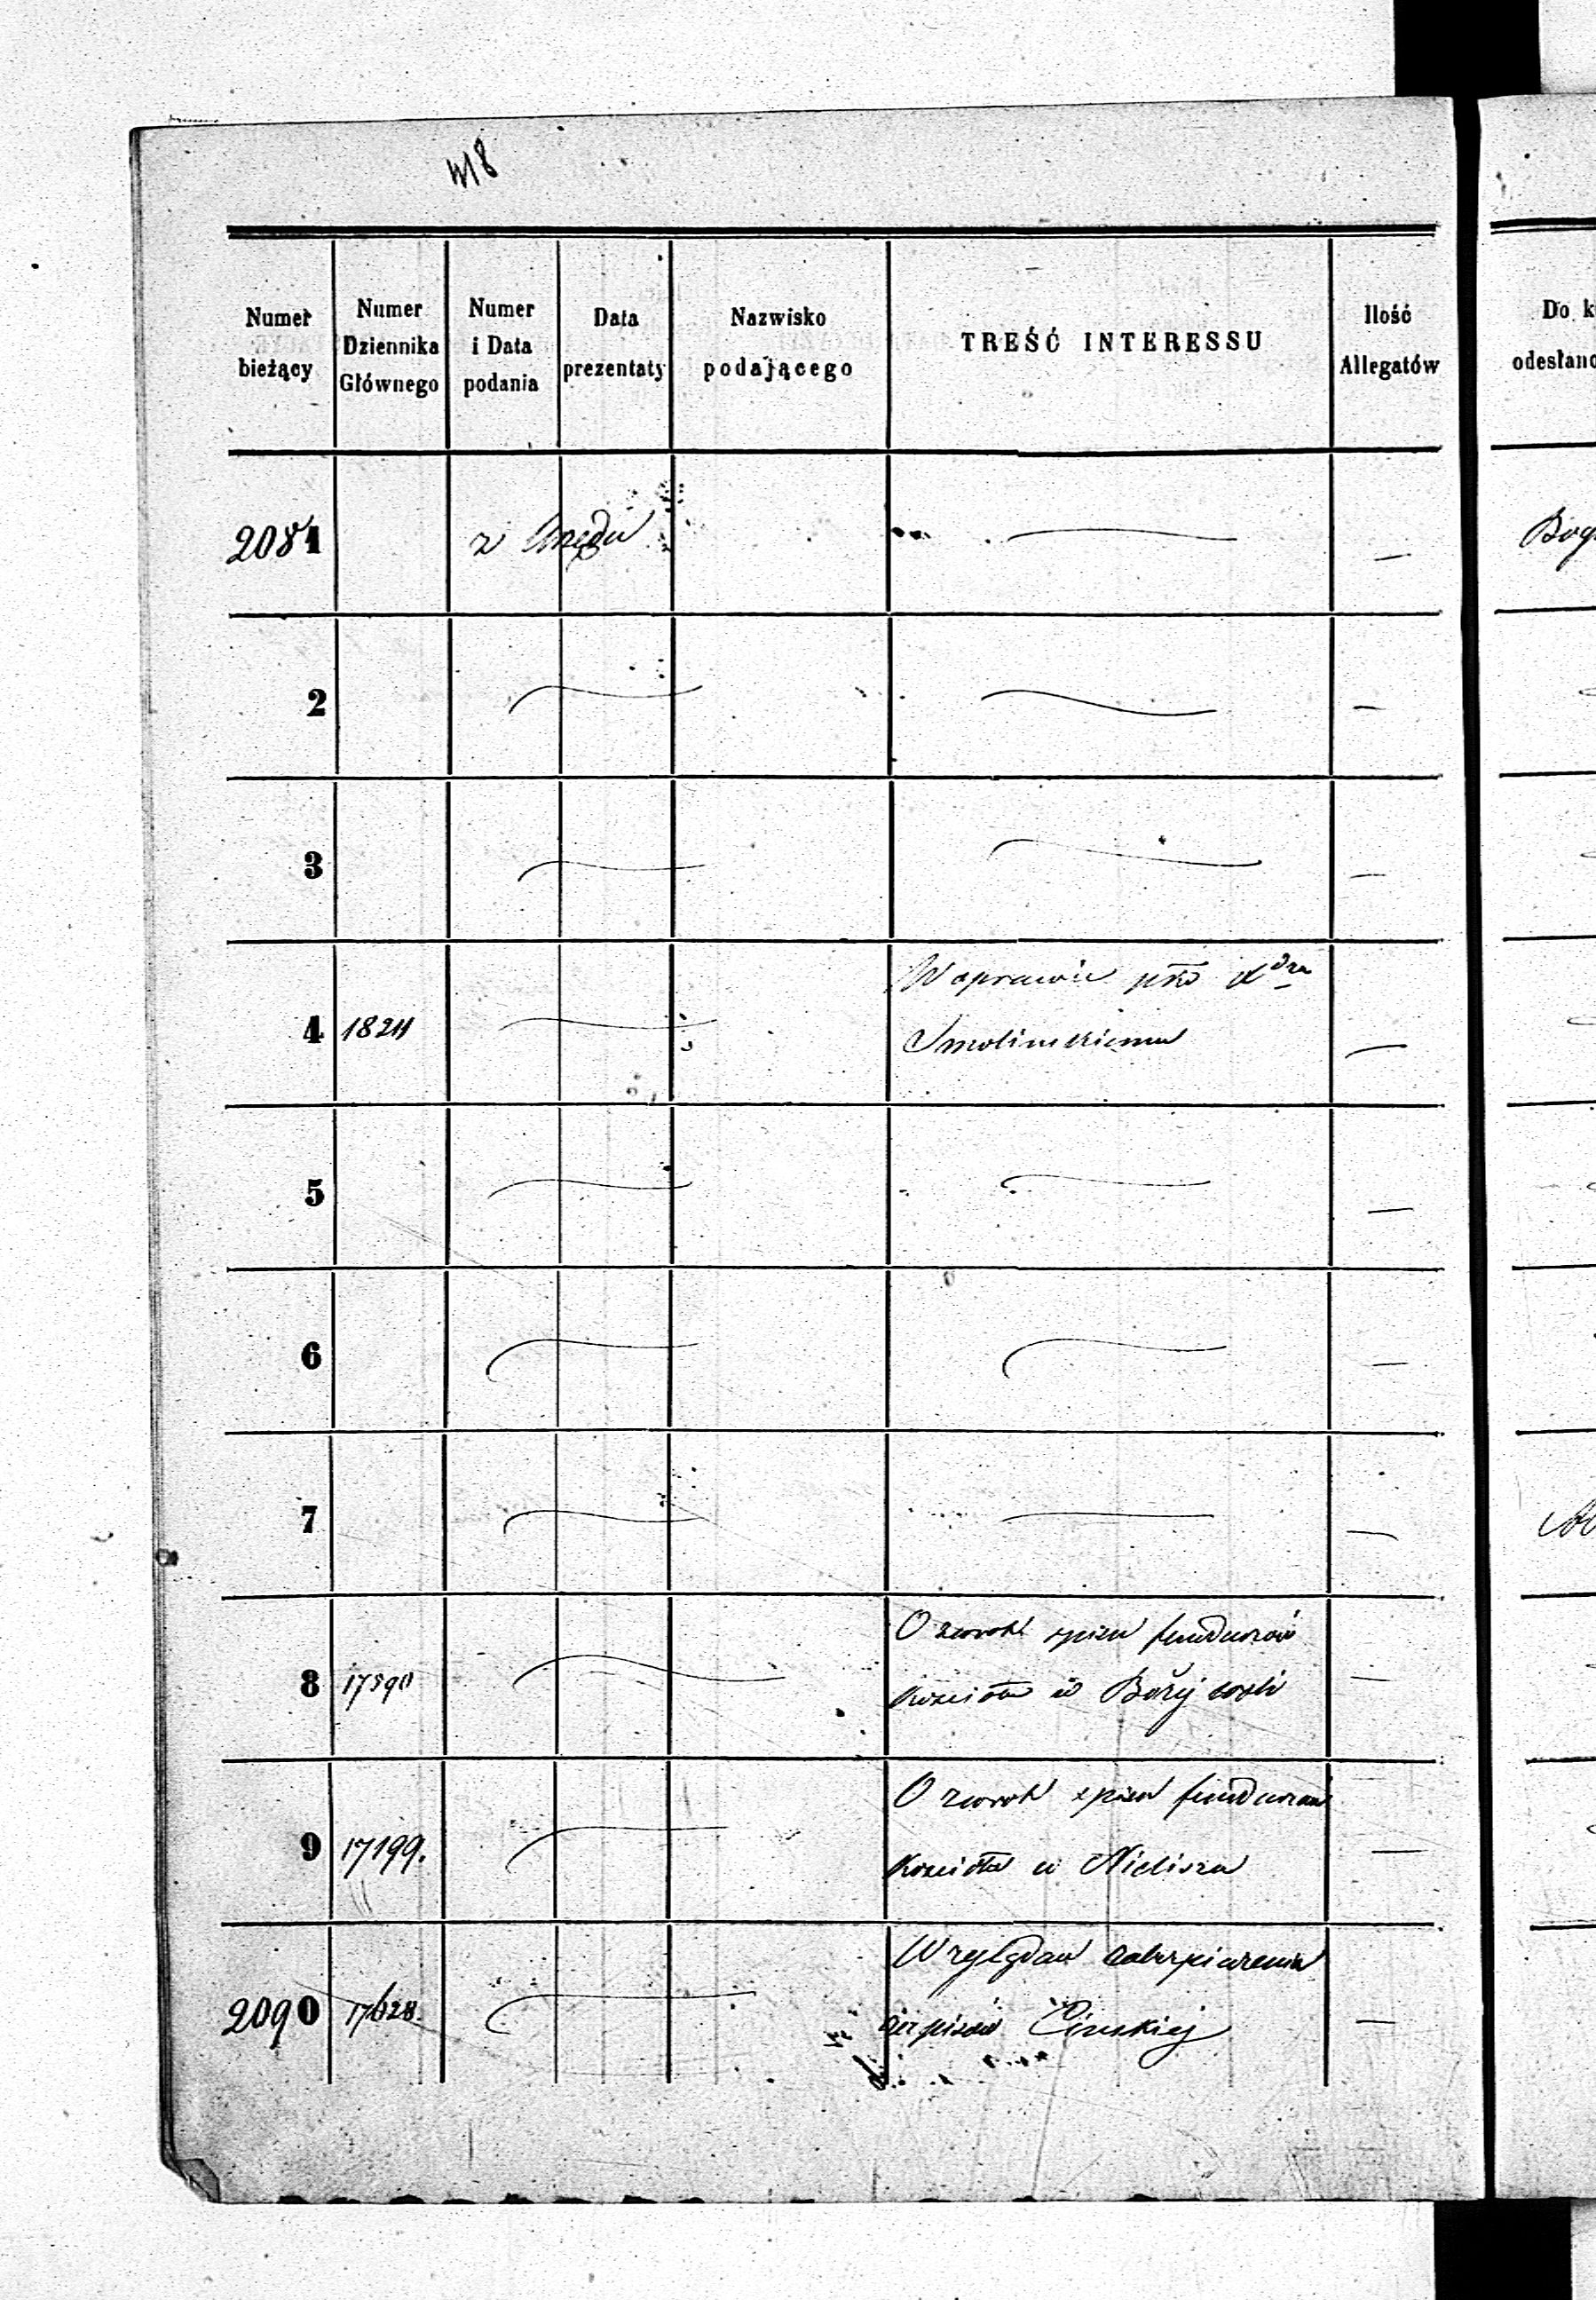 418
Numer bieżący
Numer Dziennika Głównego
Numer i Data podania
Data prezentaty
Nazwisko podającego
TREŚĆ INTERESSU
Ilość Allegatów
Do k
odesłano
2081 z Urzędu — — Bog
2 — —
3 — —
4 1824 — W sprawie pko Xdzu
Smolińskiemu —
5 — —
6 — —
7 — —
8 17590 — O zwrot spisu funduszów
Kościoła w Bożej woli —
9 17199. — O zwrot spisu funduszów
Kościoła w Nieliszu —
2090 17628. — Względem zabezpieczenia
—